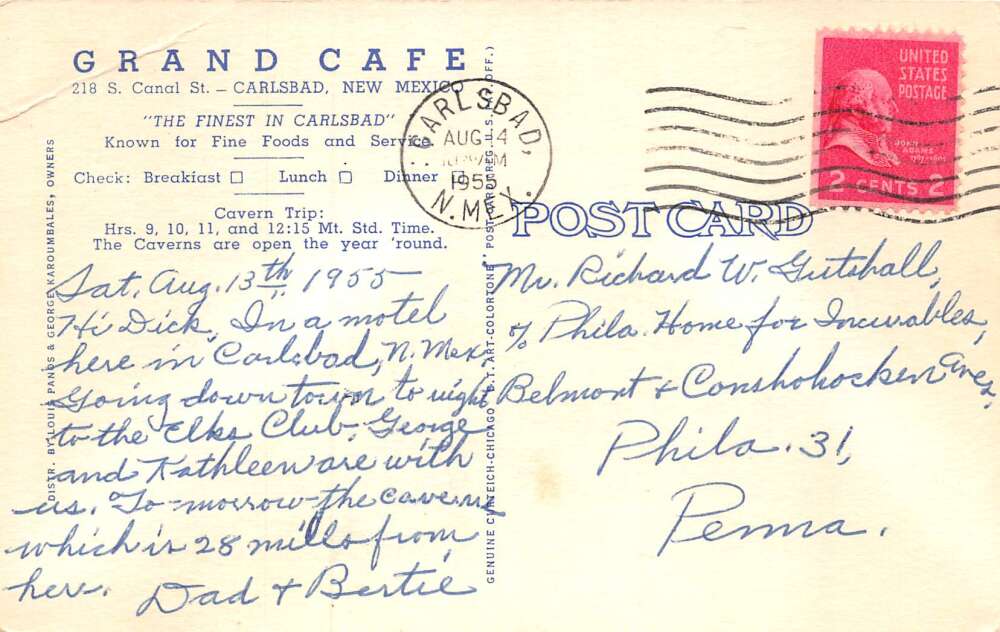 GRAND CAFE
218 S. Canal St. — CARLSBAD, NEW MEXICO
"THE FINEST IN CARLSBAD"
Known for Fine Foods and Service
Check: Breakfast □ Lunch □ Dinner □
Cavern Trip:
Hrs. 9, 10, 11, and 12:15 Mt. Std. Time.
The Caverns are open the year 'round.
DISTR. BY LOUIE PANOS & GEORGE KAROUMBALES, OWNERS
Sat, Aug. 13th 1955
Hi Dick, In a motel
here in Carlsbad, N. Mex.
Going down town to night
to the Elks Club. George
and Kathleen are with
us. To-morrow the cavern
which is 28 mills from
her. Dad & Bertie
GENUINE CURTEICH-CHICAGO "C.T. ART-COLORTONE" POST CARD (REG. U.S. OFF.)
CARLSBAD,
AUG 14
AM
1955
N. MEX.
UNITED
STATES
POSTAGE
JOHN
ADAMS
1797-1801
2 CENTS 2
POST CARD
Mr. Richard W. Gutshall,
% Phila. Home for Incurables,
Belmont & Conshohocken Aves,
Phila. 31,
Penna.